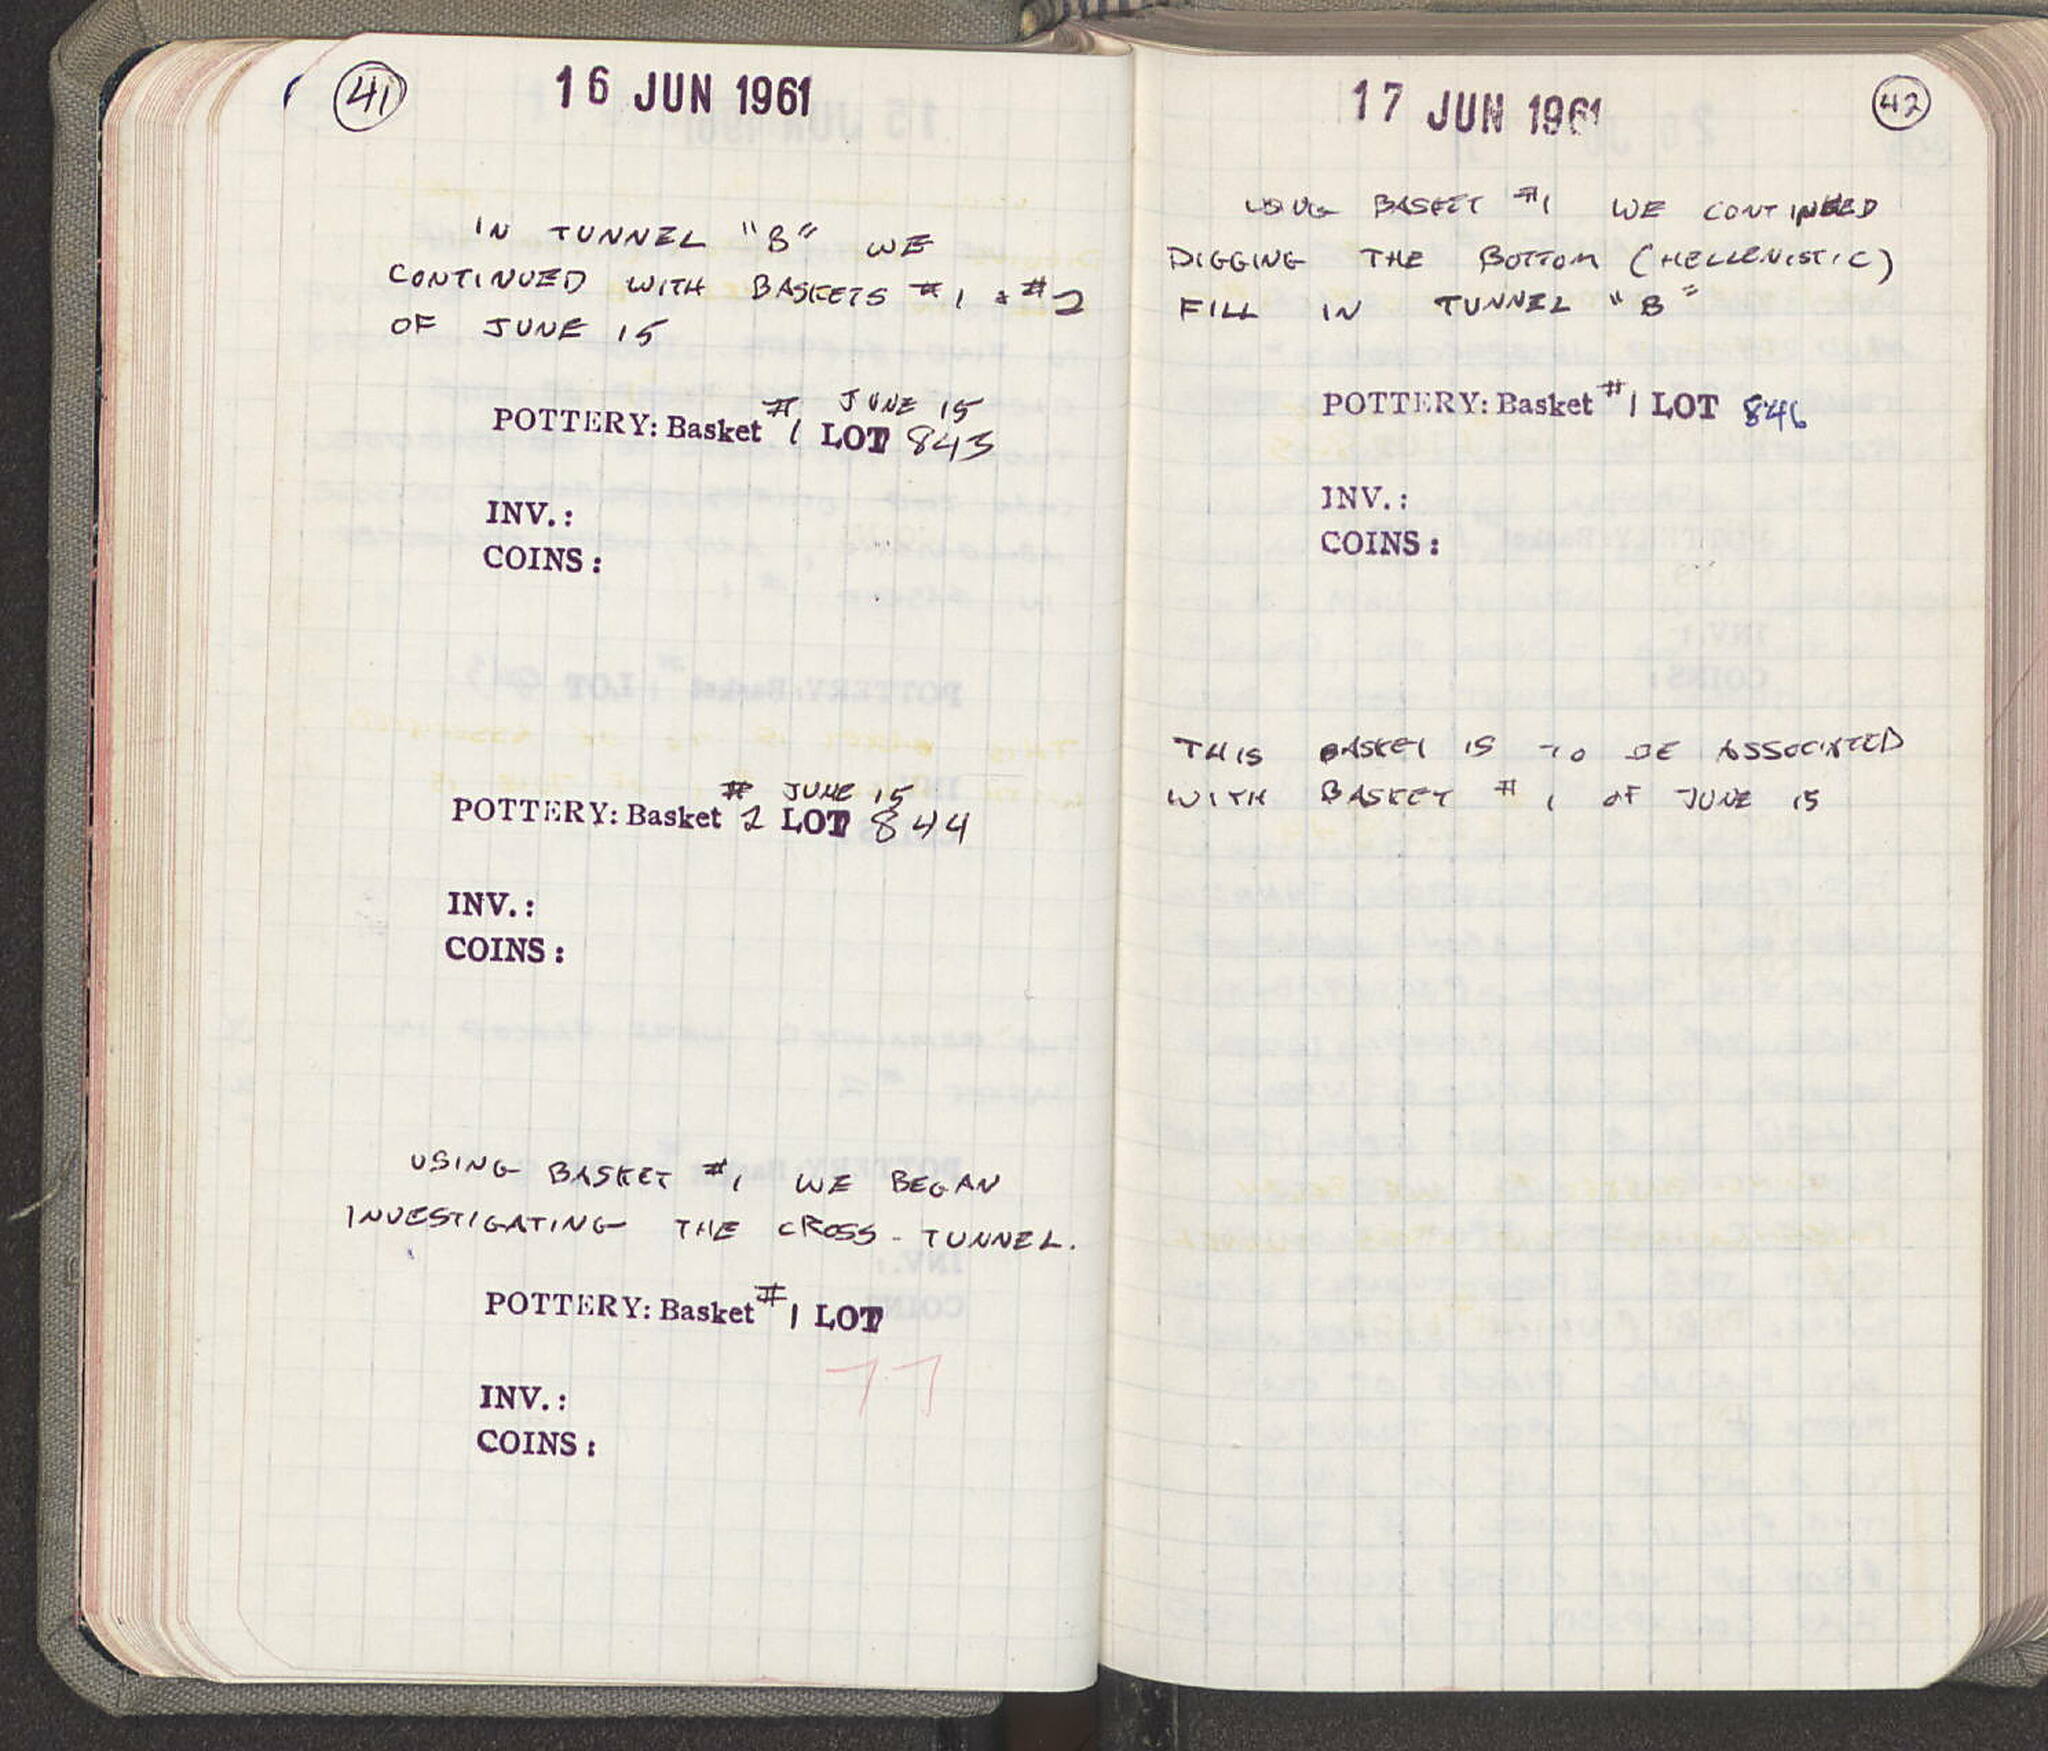 41
16 JUN 1961
IN TUNNEL "B" WE
CONTINUED WITH BASKETS #1 & #2
OF JUNE 15
JUNE 15
POTTERY: Basket #1 LOT 843
INV.:
COINS:
JUNE 15
POTTERY: Basket #2 LOT 844
INV.:
COINS:
USING BASKET #1 WE BEGAN
INVESTIGATING THE CROSS-TUNNEL.
POTTERY: Basket #1 LOT
INV.:
COINS:
17 JUN 1961
42
USING BASKET #1 WE CONTINUED
DIGGING THE BOTTOM (HELLENISTIC)
FILL IN TUNNEL "B"
POTTERY: Basket #1 LOT 846
INV.:
COINS:
THIS BASKET IS TO BE ASSOCIATED
WITH BASKET #1 OF JUNE 15